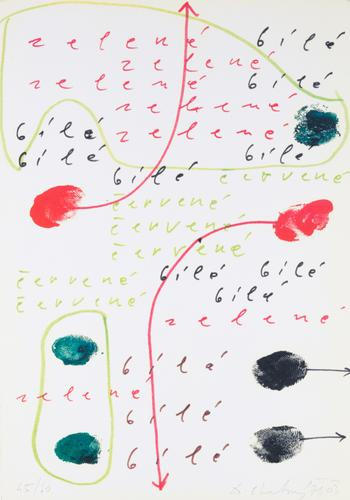 zelené bílé
zelené
zelené bílé
zelené
bílé zelené
bílé bílé
bílé červené
červené
červené
červené
bílé bílé
červené
bílé
červené
zelené
bílé
zelené
bílé
bílé
45/60